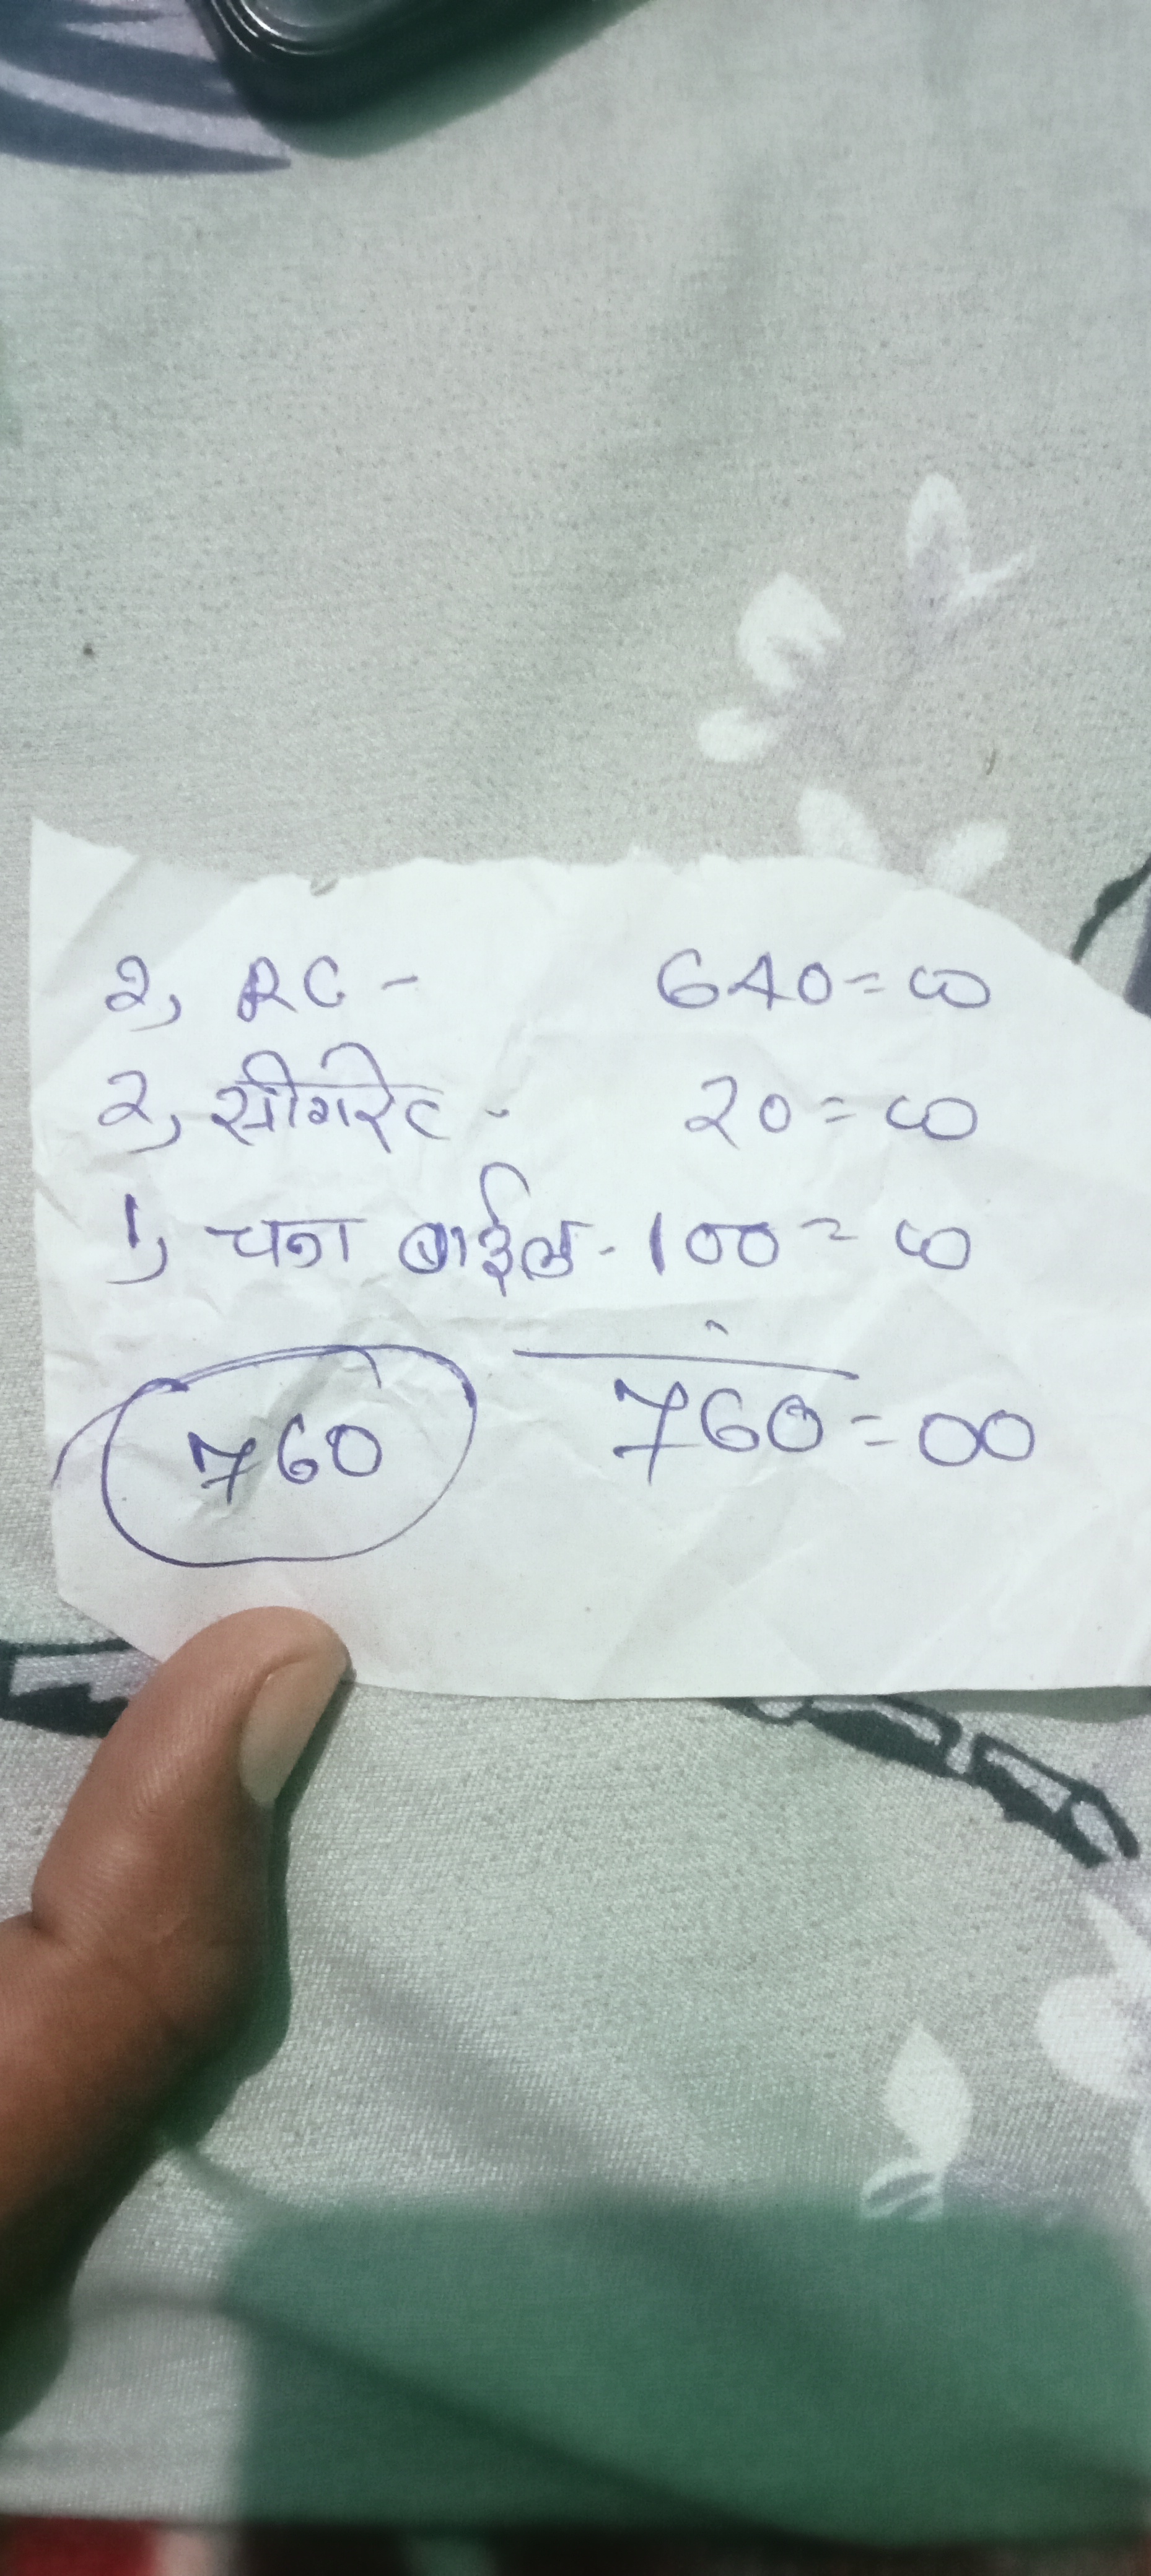 2, RC - 640=00
2, सीगरेट - 20=00
1, चना बाईल - 100=00
760 760=00